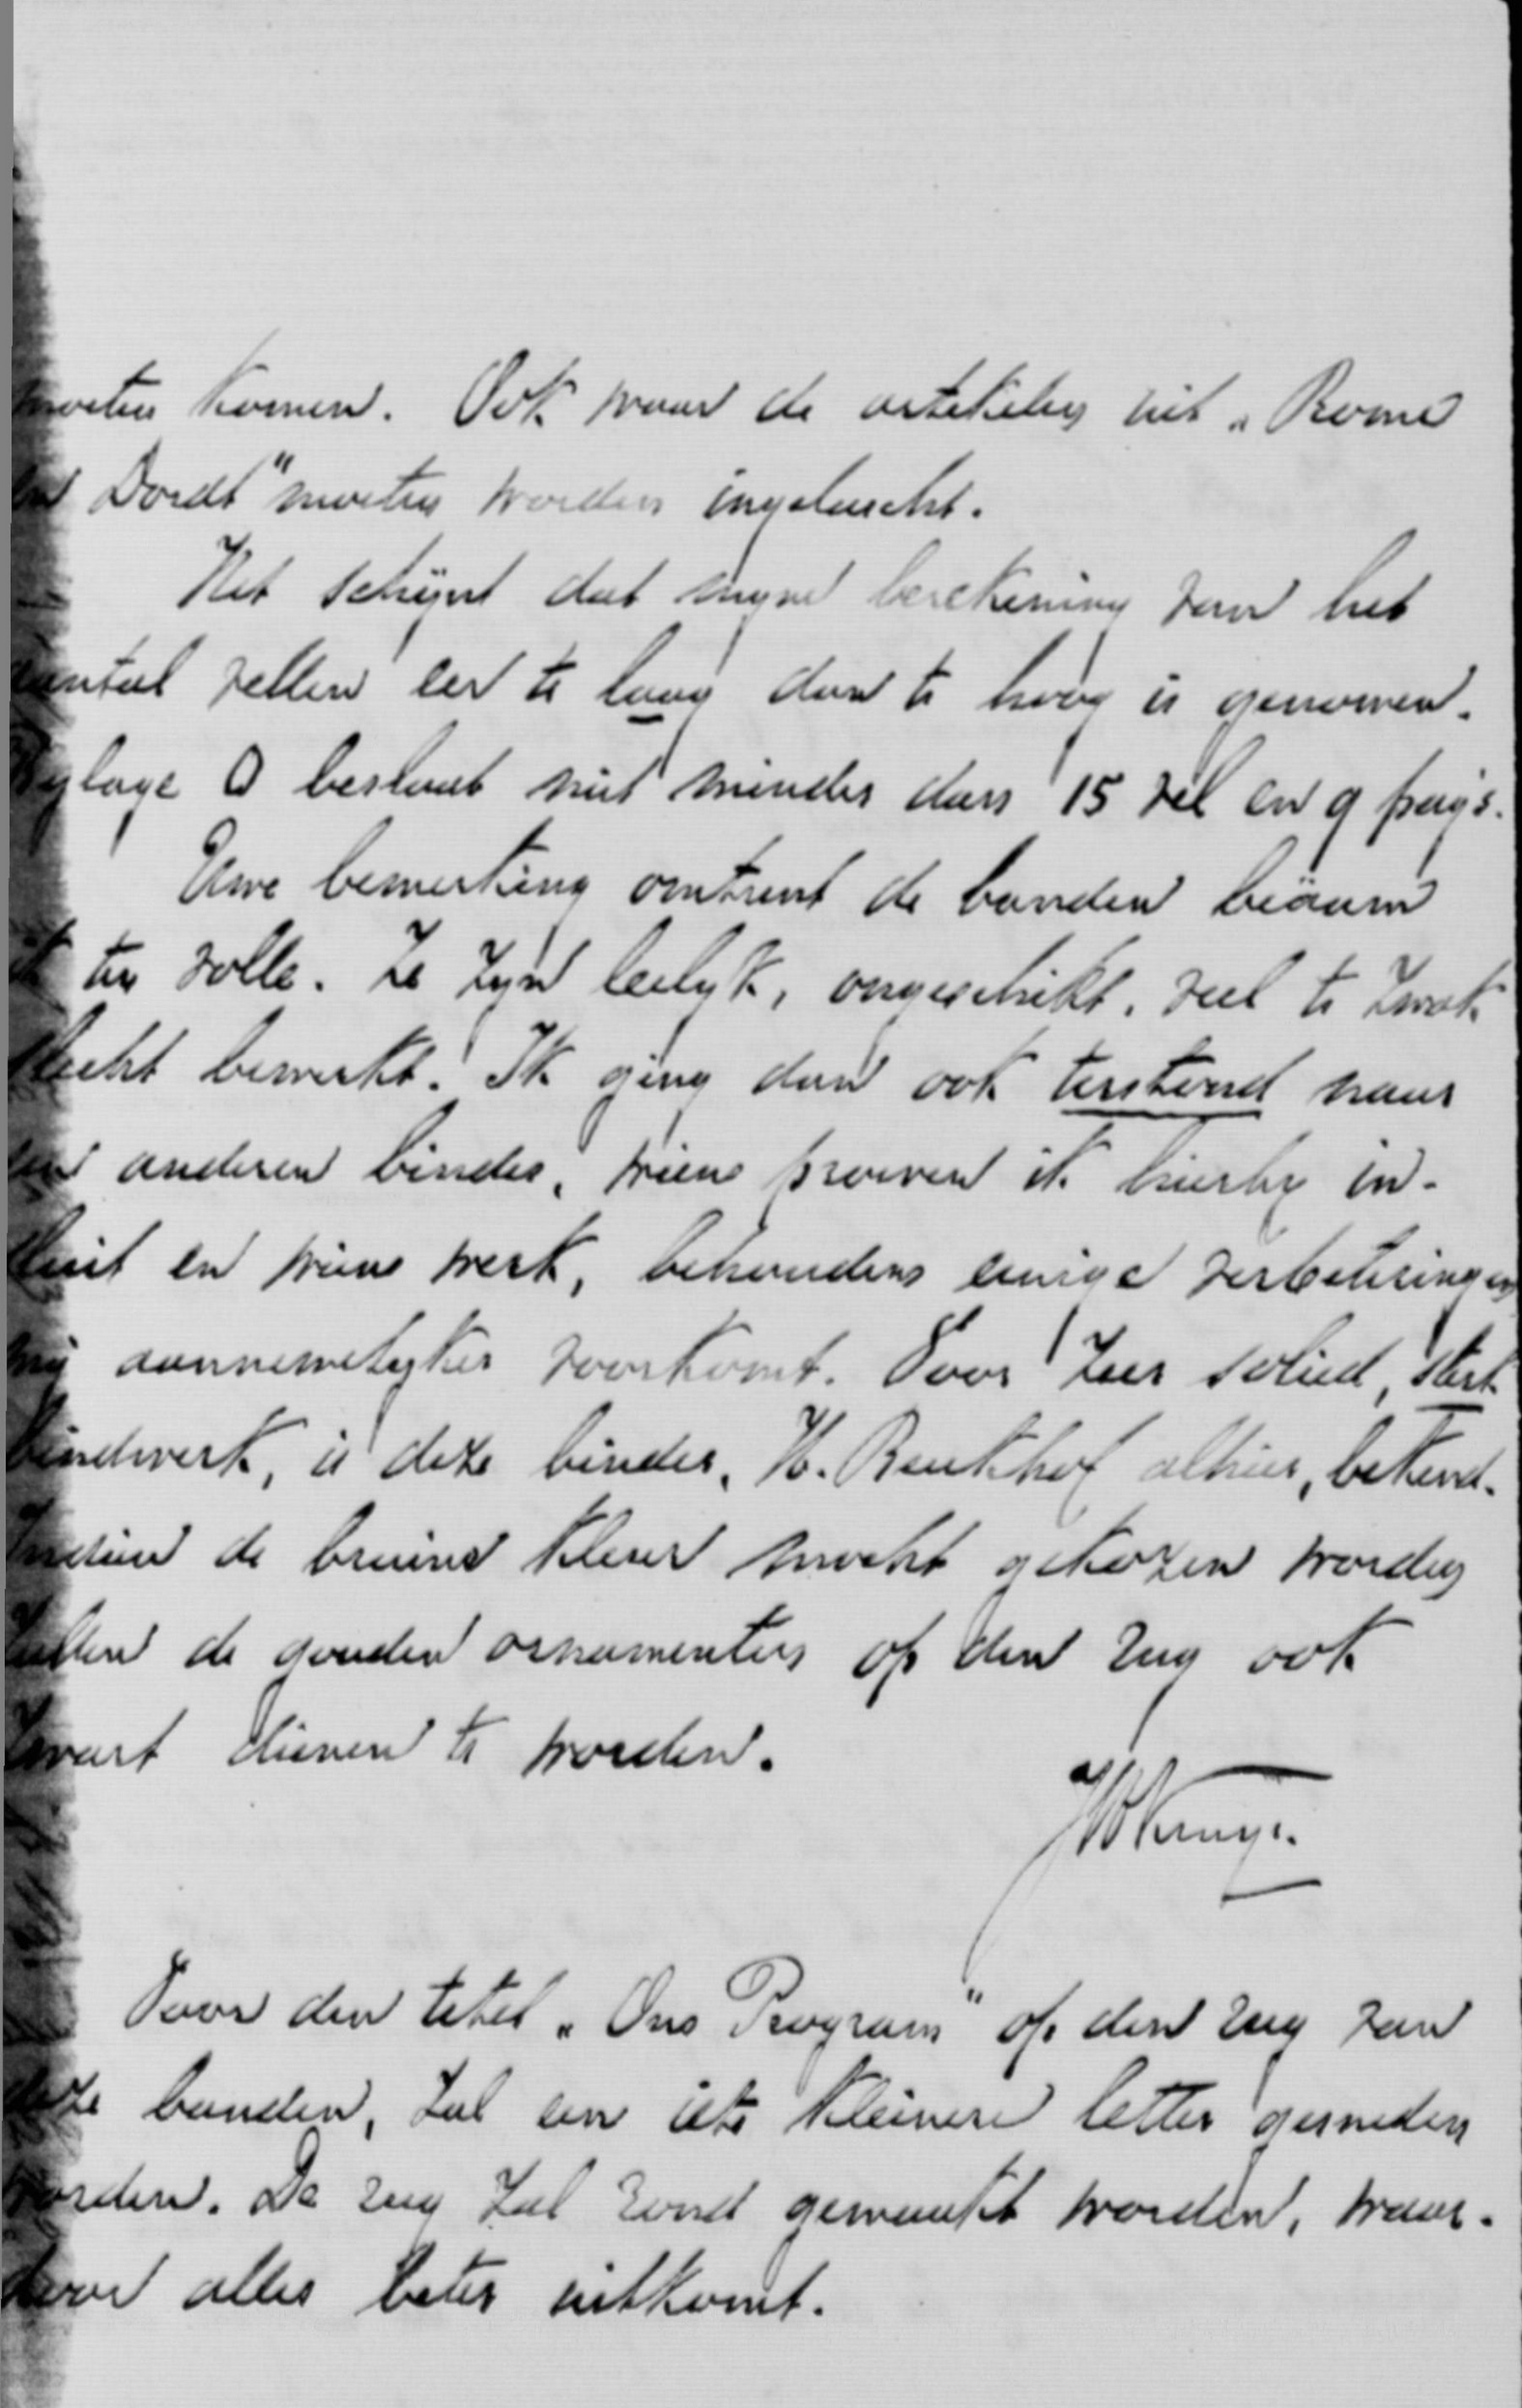 moeten komen. Ook waar de artikelen uit „Rome
en Dordt" moeten worden ingelascht.
Het schijnt dat myne berekening van het
aantal vellen eer te laag dan te hoog is genomen.
Bylage O beslaat niet minder dan 15 vel en 9 pag's.
Uwe bemerking omtrent de banden beäam
ik ten volle. Ze zyn leelyk, ongeschikt, veel te zwak
slecht bewerkt. Ik ging dan ook terstond naar
een anderen binder, wiens proeven ik hierby in-
sluit en wiens werk, behoudens eenige verbeteringen
my aannemelyker voorkomt. Voor zeer solied, sterk
bindwerk, is deze binder, alhier, bekend.
Indien de bruine kleur mocht gekozen worden
zullen de gouden ornamenten op den rug ook
zwart dienen te worden.
JHKruyt.
Voor den titel „Ons Program" op den rug van
deze banden, zal een iets kleinere letter gesneden
worden. De rug zal rond gemaakt worden, waar-
door alles beter uitkomt.